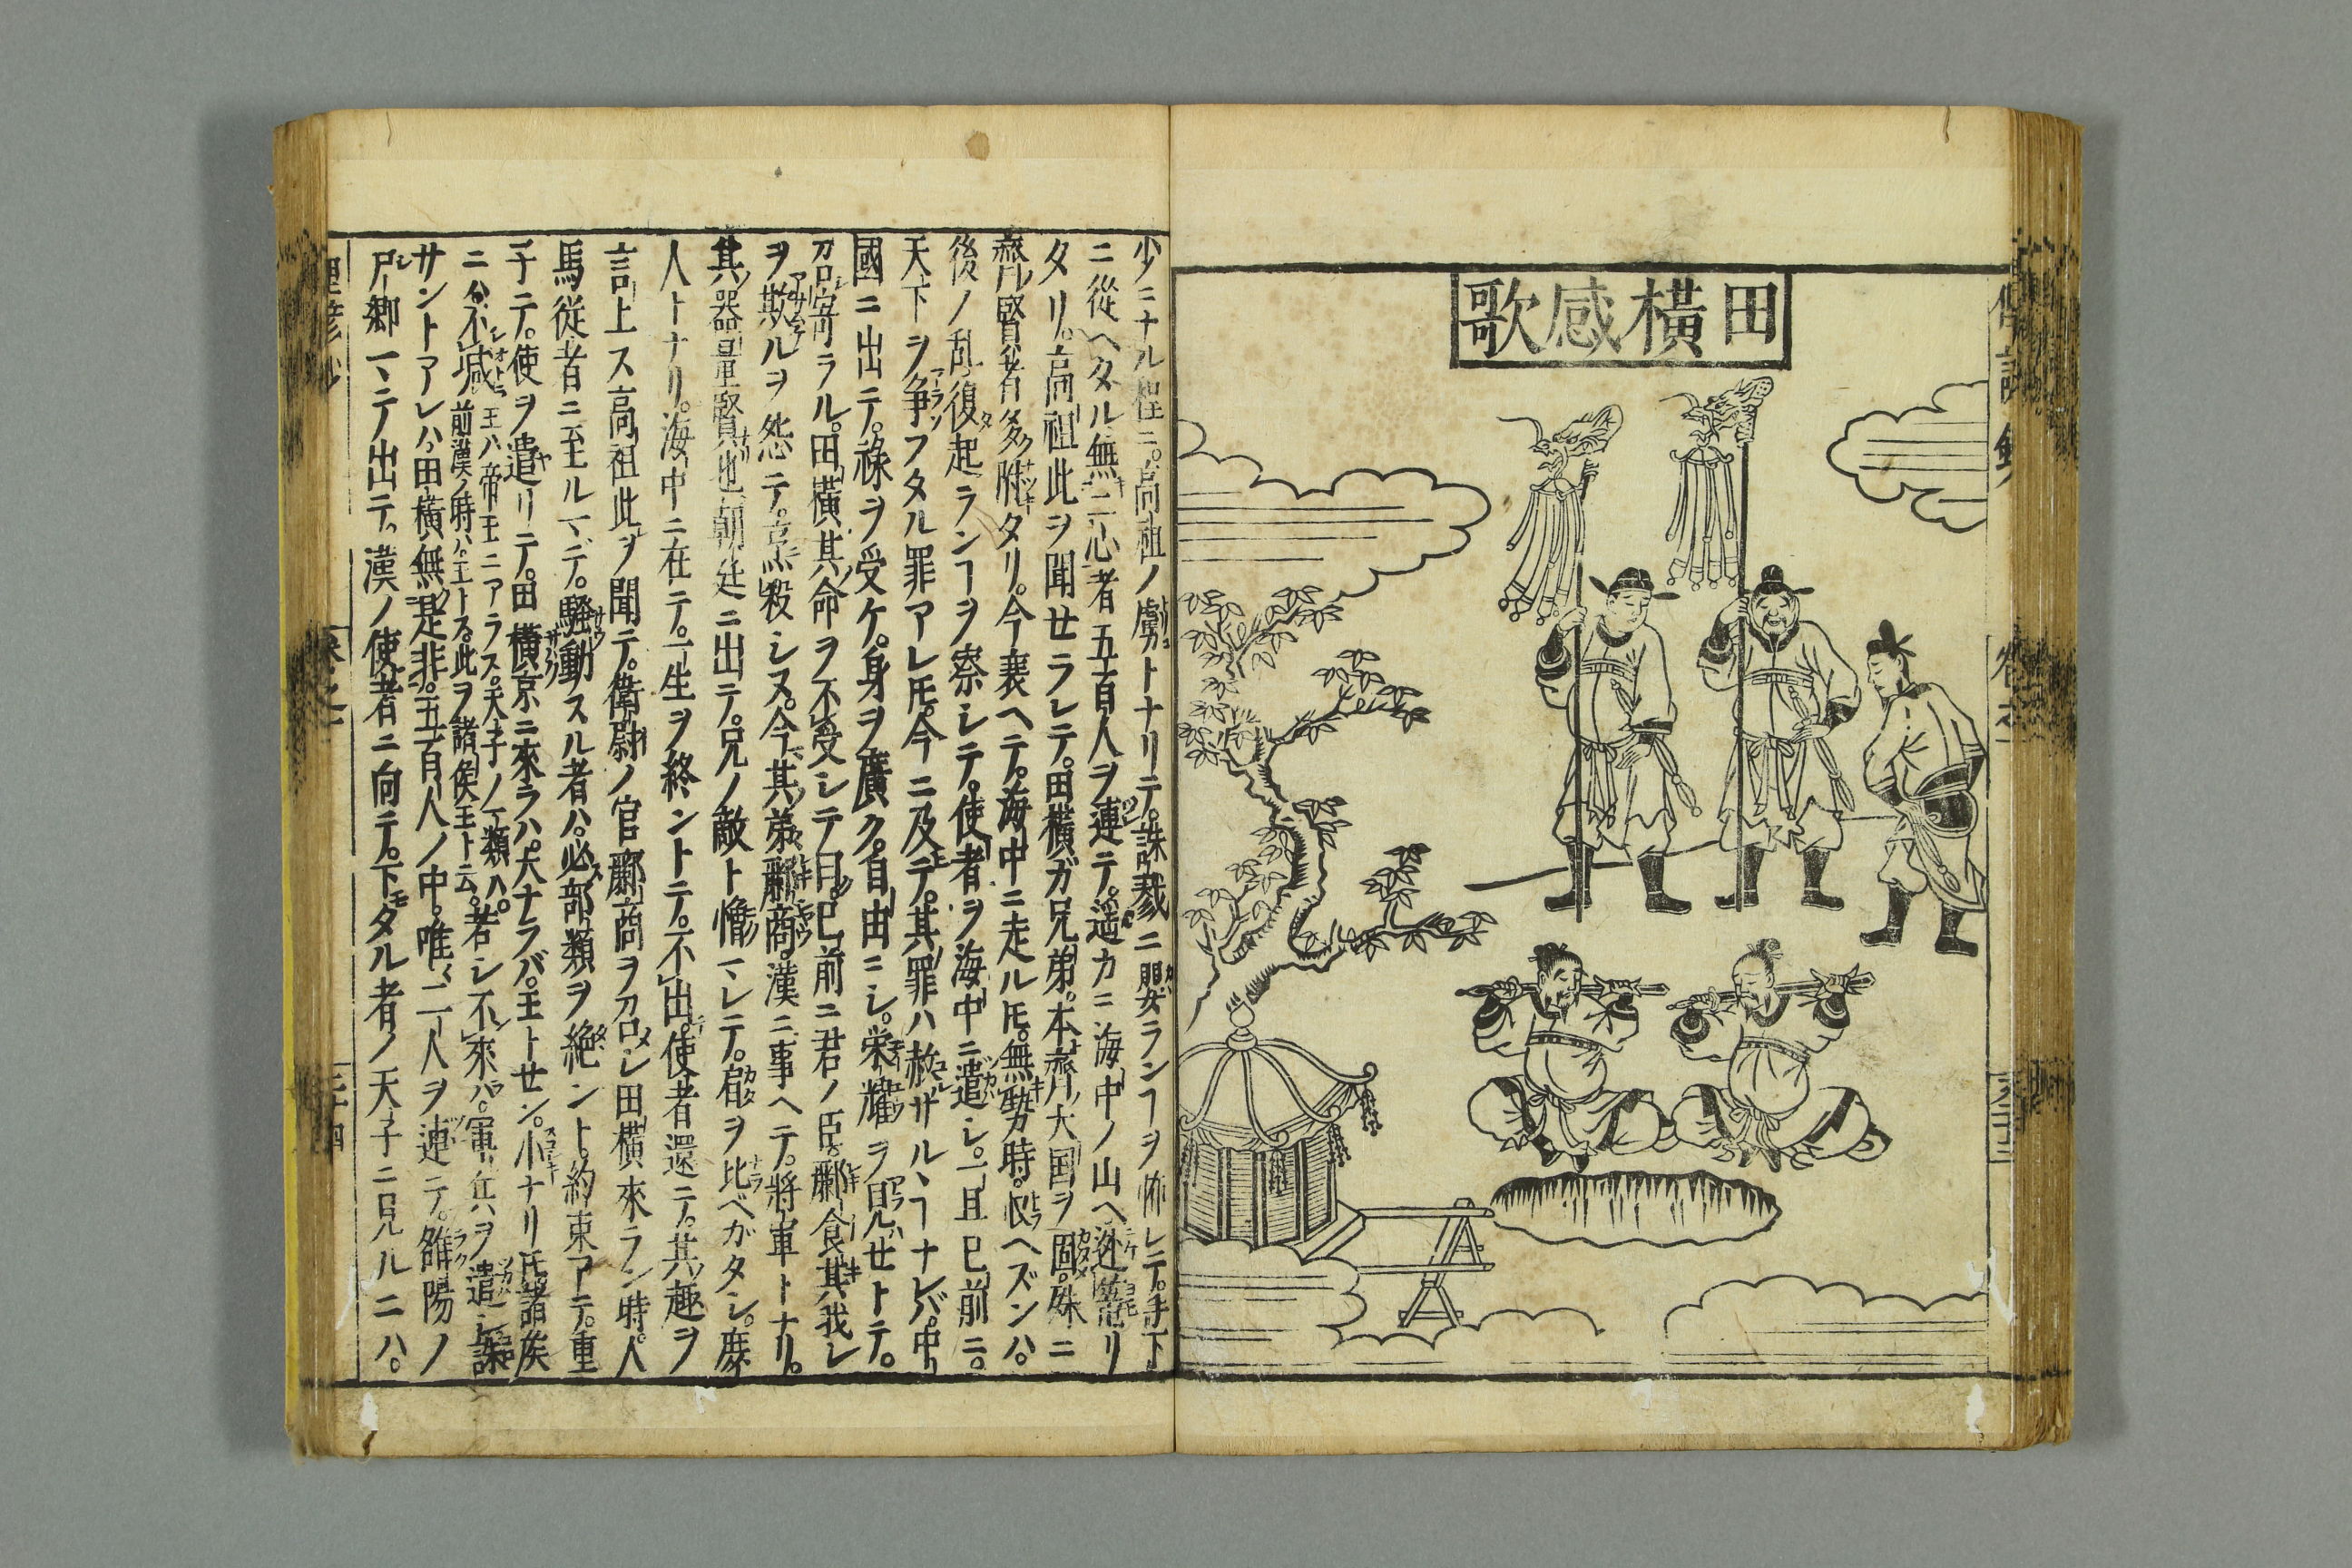 田横感歌
少ニナル程ニ。高祖ノ虜トナリテ。誅戮ニ嬰ランヿヲ怖レテ。手下
ニ從ヘタル無二心者五百人ヲ連テ。遥カニ海中ノ山ヘ迯籠リ
タリ。高祖此ヲ聞セラレテ。田横ガ兄弟。本齊ノ大国ヲ固。殊ニ
齊ノ賢者多ク附タリ。今衰ヘテ。海中ニ走ル𪜈。無勢時。収ヘズンハ。
後ノ乱復起ランヿヲ察シテ。使者ヲ海中ニ遣シ。一旦巳前ニ。
天下ヲ争フタル罪アレ𪜈。今ニ及テ。其罪ハ赦サルヽヿナレバ。中
國ニ出テ。祿ヲ受ケ。身ヲ廣ク。自由ニシ。栄耀ヲ見セトテ。
召寄ラル。田横其命ヲ不受シテ曰。巳前ニ君ノ臣。酈食其我レ
ヲ欺ルヲ怨テ。烹殺シヌ。今其弟酈商。漢ニ事ヘテ。將軍トナリ。
其器量賢也。朝廷ニ出テ。兄ノ敵ト憎マレテ。肩ヲ比ベガタシ。庶
人トナリ。海中ニ在テ。一生ヲ終ントテ。不出。使者還テ。其趣ヲ
言上ス高祖此ヲ聞テ。衛尉ノ官酈商ヲ召シ田横來ラン時。人
馬從者ニ至ルマデ。騒動スル者ハ。必部類ヲ絶ント。約束アテ。重
子テ。使ヲ遣リテ。田横京ニ來ラハ。大ナラバ。王トセン。小ナリ𪜈。諸侯
ニハ。不减。王ハ帝王ニアラス。天子ノ類ハ。前漢ノ時ハ。王トス。此ヲ諸侯王ト云。若シ不來ハ。軍兵ヲ遣シ誅
サントアレハ。田横無是非。五百人ノ中。唯二人ヲ連テ。雒陽ノ
尸郷マテ出テ。漢ノ使者ニ向テ。下タル者ノ天子ニ見ルニハ。